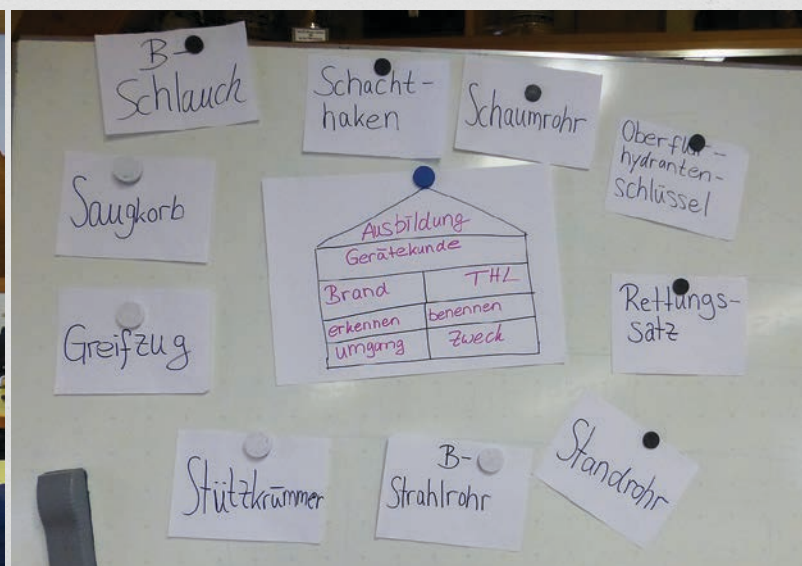 B-
Schlauch
Schacht-
haken
Schaumrohr
Oberflur-
hydranten-
schlüssel
Saugkorb
Ausbildung
Gerätekunde
Brand
THL
erkennen
benennen
umgang
Zweck
Rettungs-
satz
Greifzug
Stützkrümmer
B-
Strahlrohr
Standrohr